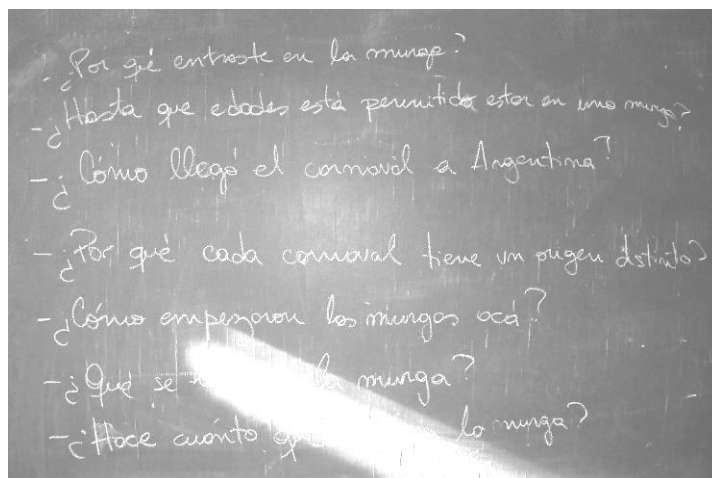 - ¿Por qé entraste en la murga?
- ¿Hasta que edades está permitido estar en una murga?
- ¿Cómo llegó el carnaval a Argentina?
- ¿Por qué cada carnaval tiene un origen distinto?
- ¿Cómo empezaron las murgas acá?
- ¿Qué se la murga?
- ¿Hace cuánto la murga?